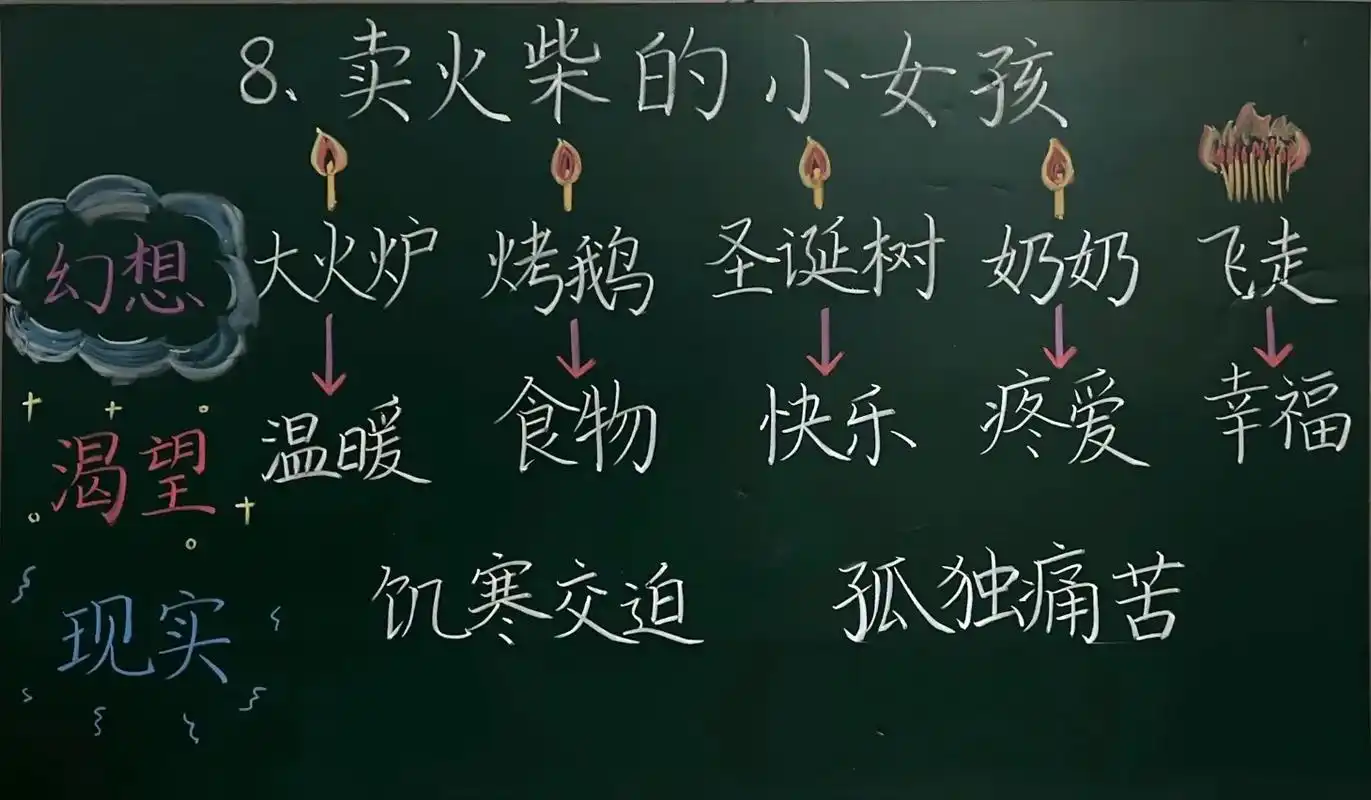 8、卖火柴的小女孩
幻想 大火炉 烤鹅 圣诞树 奶奶 飞走
渴望 温暖 食物 快乐 疼爱 幸福
现实 饥寒交迫 孤独痛苦